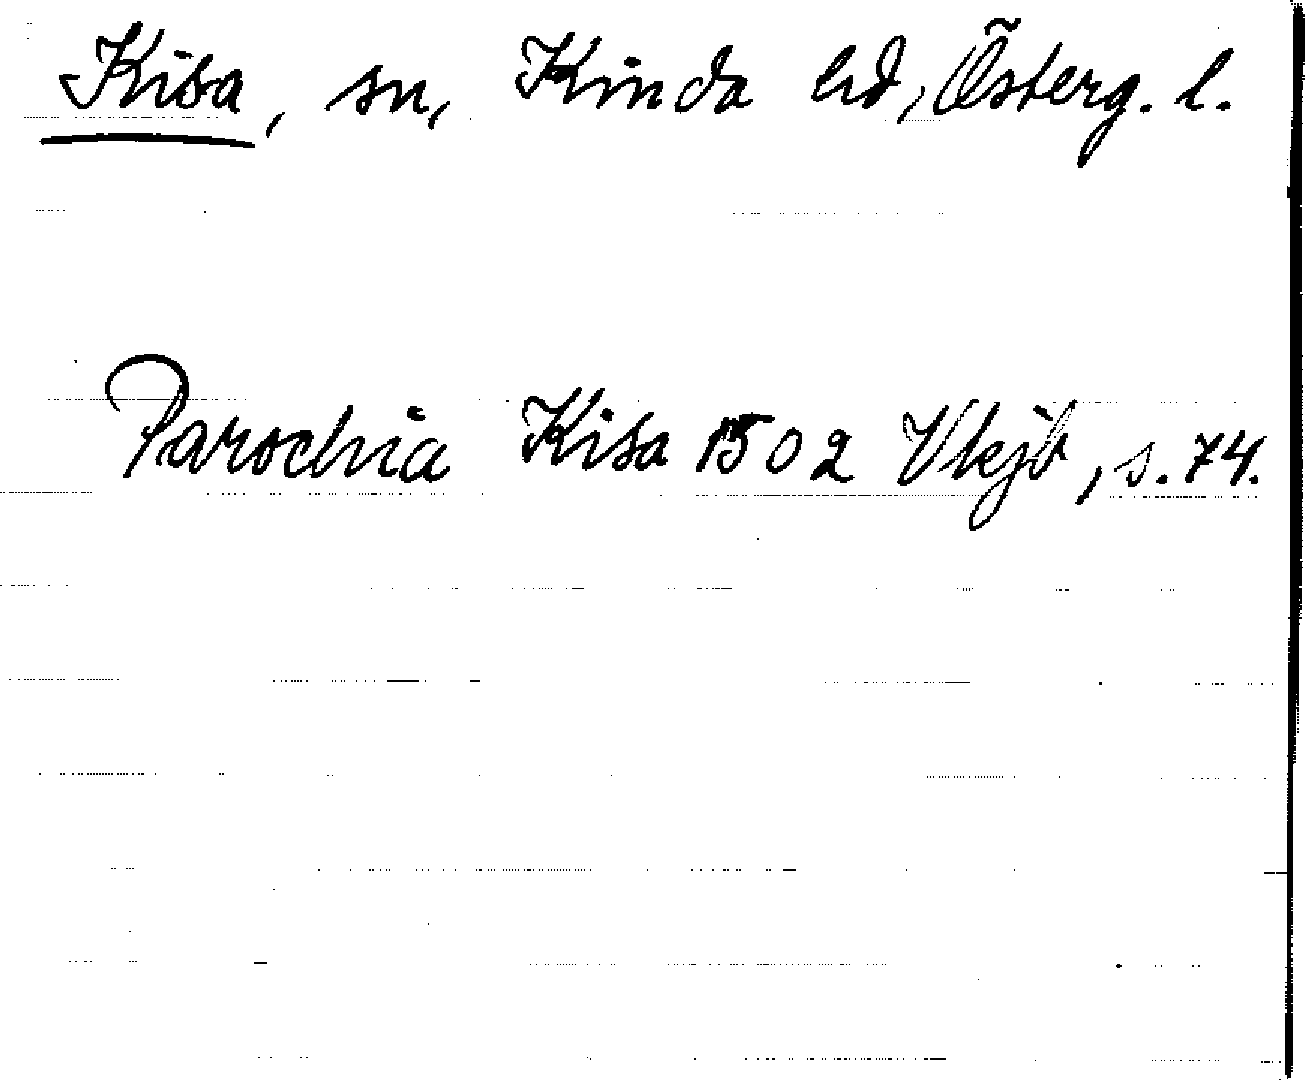 Kisa, sn, Kinda hd, Österg. l.
Parochia Kisa 1502 Vkjb, s. 74.